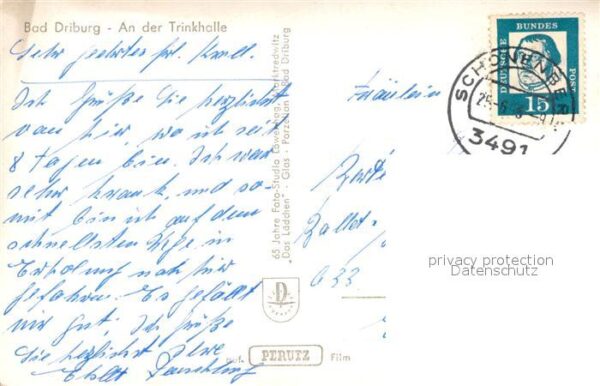 Bad Driburg - An der Trinkhalle
Sehr geehrtes Frl. Kroll.
Ich grüße Sie herzlichst
von hier, wo ich seit
8 Tagen bin. Ich war
sehr krank, und so-
mit bin ich auf dem
schnellsten Wege in
Erholung nach hier
gefahren. Es gefällt
mir gut. Ich grüße
Sie herzlichst Ihre
65 Jahre Foto-Studio
"Das Lädchen" - Glas - Porzellan Bad Driburg
D
auf PERUTZ Film
Fräulein
633
DEUTSCHE BUNDES POST
15
SCHÖNENBERG
3491
privacy protection
Datenschutz